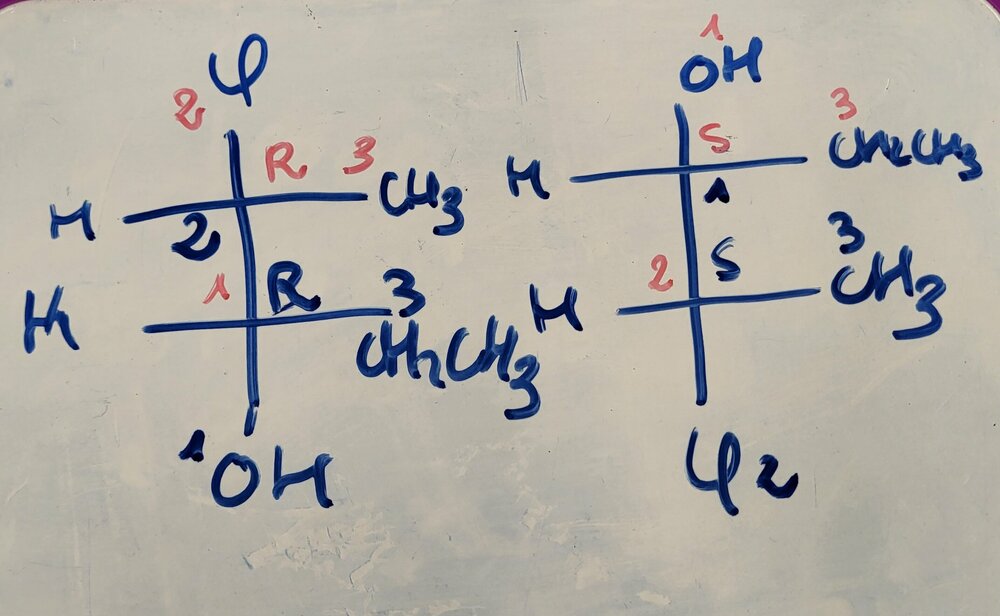 φ
2
R 3
H CH3
2
1 R 3
H CH2CH3
1 OH
1
OH
S 3
H CH2CH3
1
2 S 3
H CH3
φ 2